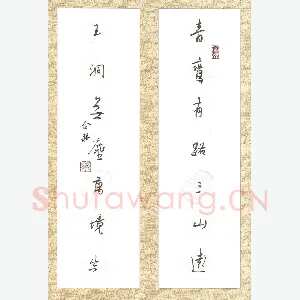 青有路三山遠
玉洞無塵萬境空
Shufawang.CN